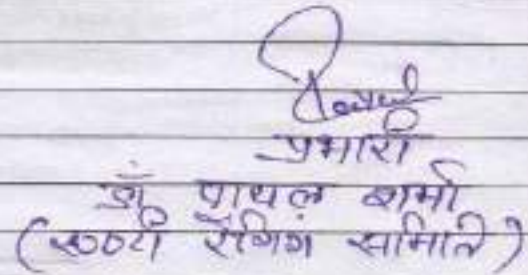 Payal
प्रभारी
डॉ पायल शर्मा
(एण्टी रैगिंग समिति)